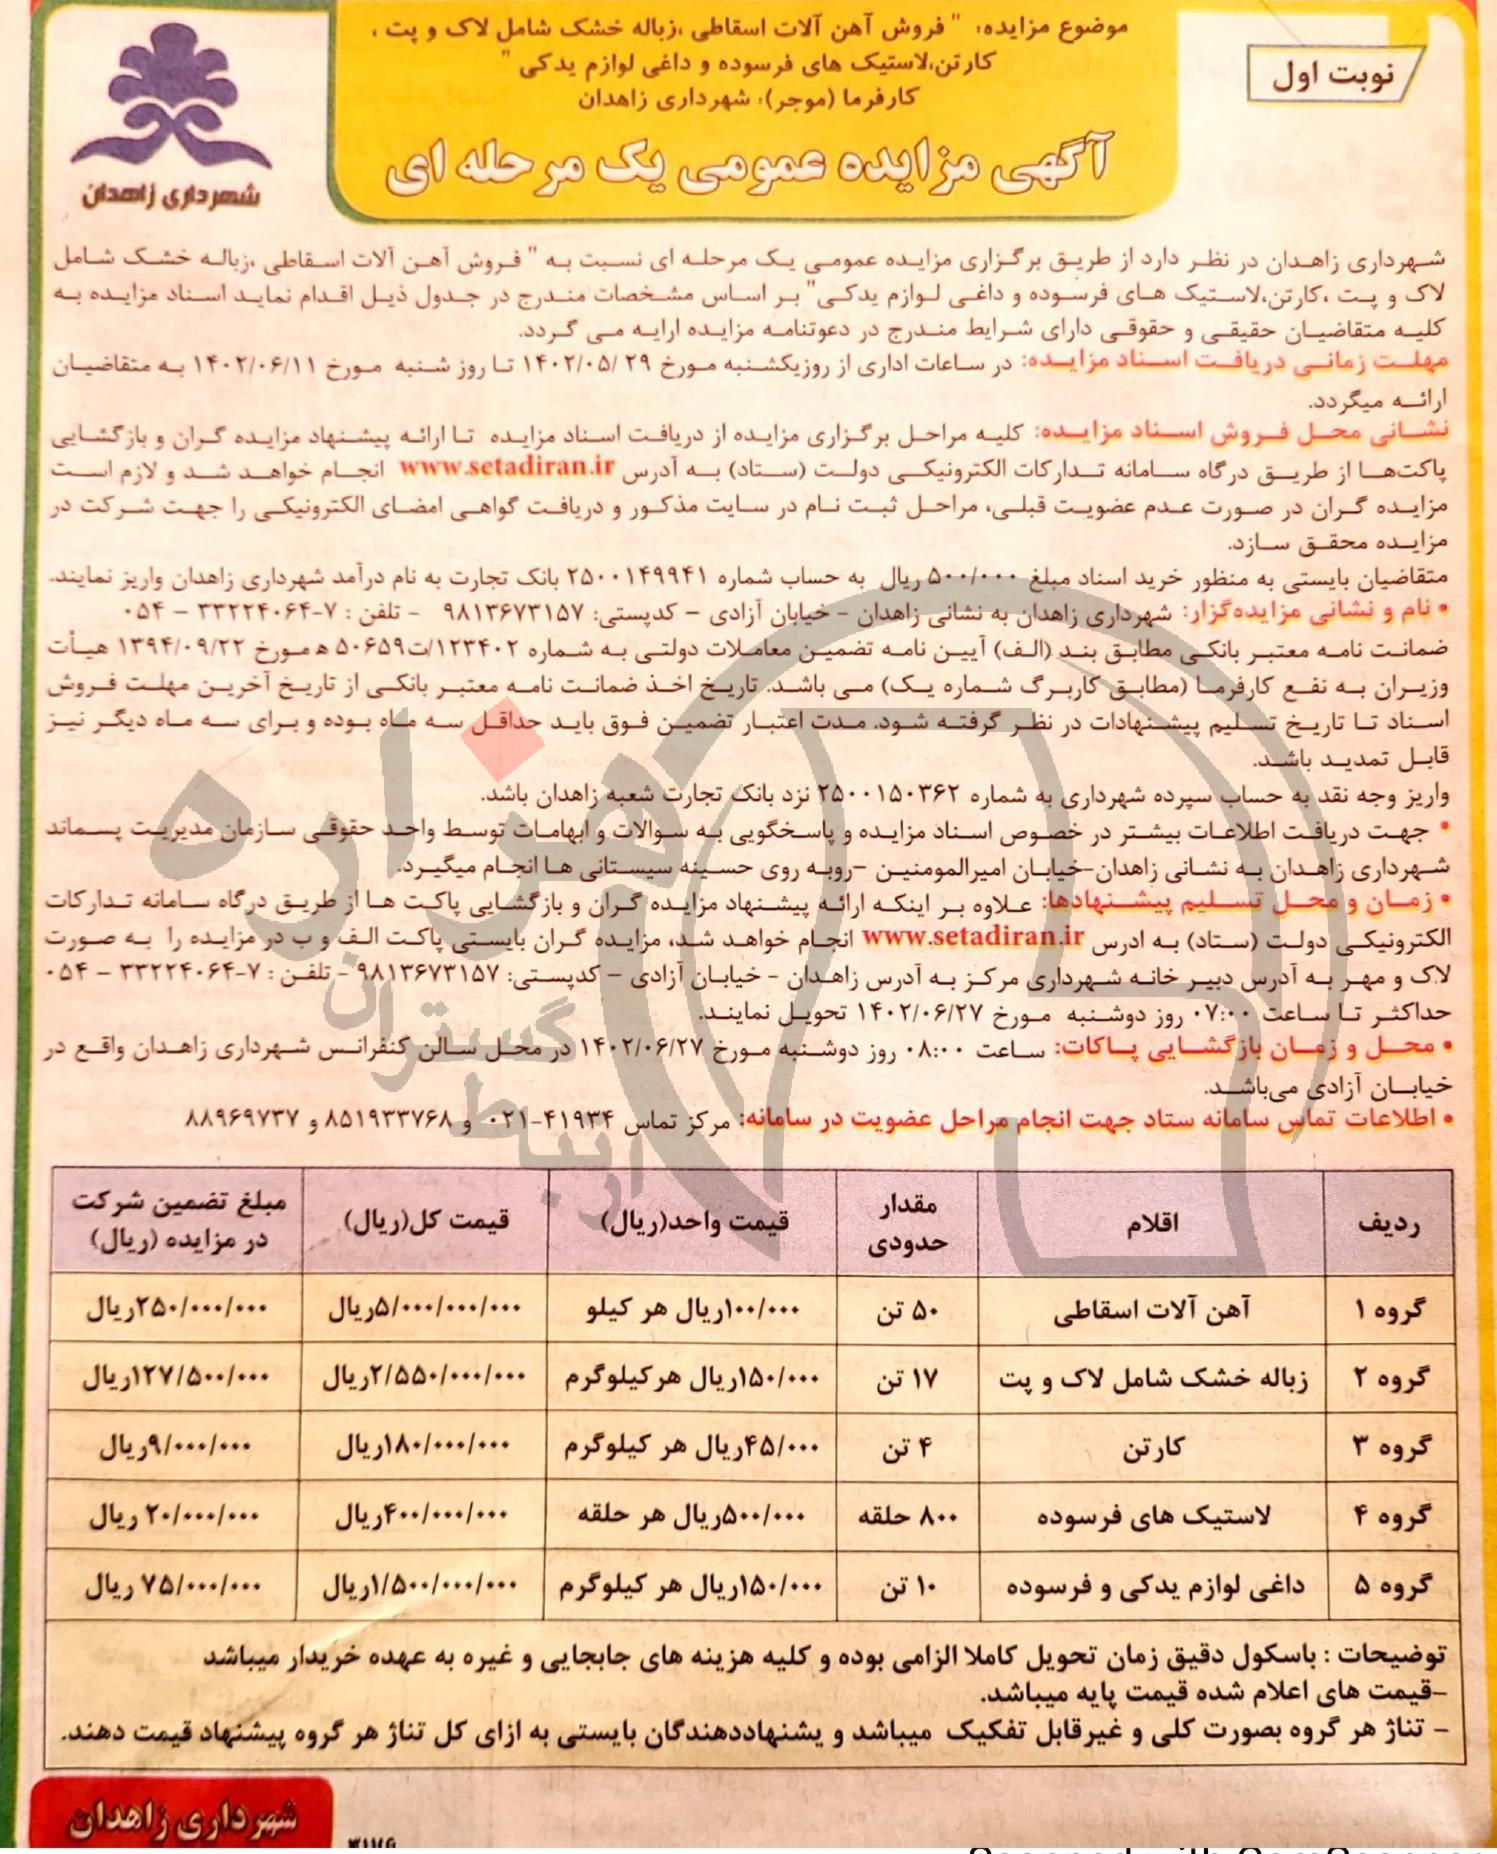 موضوع مزایده: " فروش آهن آلات اسقاطی ،زباله خشک شامل لاک و پت ،
کارتن،لاستیک های فرسوده و داغی لوازم یدکی "
کارفرما (موجر): شهرداری زاهدان
نوبت اول
آگهی مزایده عمومی یک مرحله ای
شهرداری زاهدان
شهرداری زاهدان در نظر دارد از طریق برگزاری مزایده عمومی یک مرحله ای نسبت به " فروش آهن آلات اسقاطی ،زباله خشک شامل
لاک و پت ،کارتن،لاستیک های فرسوده و داغی لوازم یدکی" بر اساس مشخصات مندرج در جدول ذیل اقدام نماید اسناد مزایده به
کلیه متقاضیان حقیقی و حقوقی دارای شرایط مندرج در دعوتنامه مزایده ارایه می گردد.
مهلت زمانی دریافت اسناد مزایده: در ساعات اداری از روزیکشنبه مورخ ۱۴۰۲/۰۵/۲۹ تا روز شنبه مورخ ۱۴۰۲/۰۶/۱۱ به متقاضیان
ارائه میگردد.
نشانی محل فروش اسناد مزایده: کلیه مراحل برگزاری مزایده از دریافت اسناد مزایده تا ارائه پیشنهاد مزایده گران و بازگشایی
پاکت‌ها از طریق درگاه سامانه تدارکات الکترونیکی دولت (ستاد) به آدرس www.setadiran.ir انجام خواهد شد و لازم است
مزایده گران در صورت عدم عضویت قبلی، مراحل ثبت نام در سایت مذکور و دریافت گواهی امضای الکترونیکی را جهت شرکت در
مزایده محقق سازد.
متقاضیان بایستی به منظور خرید اسناد مبلغ ۵۰۰/۰۰۰ ریال به حساب شماره ۲۵۰۰۱۴۹۹۴۱ بانک تجارت به نام درآمد شهرداری زاهدان واریز نمایند.
• نام و نشانی مزایده‌گزار: شهرداری زاهدان به نشانی زاهدان - خیابان آزادی – کدپستی: ۹۸۱۳۶۷۳۱۵۷ - تلفن : ۷-۳۳۲۲۴۰۶۴ – ۰۵۴
ضمانت نامه معتبر بانکی مطابق بند (الف) آیین نامه تضمین معاملات دولتی به شماره ۱۲۳۴۰۲/ت۵۰۶۵۹ ه مورخ ۱۳۹۴/۰۹/۲۲ هیأت
وزیران به نفع کارفرما (مطابق کاربرگ شماره یک) می باشد. تاریخ اخذ ضمانت نامه معتبر بانکی از تاریخ آخرین مهلت فروش
اسناد تا تاریخ تسلیم پیشنهادات در نظر گرفته شود. مدت اعتبار تضمین فوق باید حداقل سه ماه بوده و برای سه ماه دیگر نیز
قابل تمدید باشد.
واریز وجه نقد به حساب سپرده شهرداری به شماره ۲۵۰۰۱۵۰۳۶۲ نزد بانک تجارت شعبه زاهدان باشد.
• جهت دریافت اطلاعات بیشتر در خصوص اسناد مزایده و پاسخگویی به سوالات و ابهامات توسط واحد حقوقی سازمان مدیریت پسماند
شهرداری زاهدان به نشانی زاهدان-خیابان امیرالمومنین –روبه روی حسینه سیستانی ها انجام میگیرد.
• زمان و محل تسلیم پیشنهادها: علاوه بر اینکه ارائه پیشنهاد مزایده گران و بازگشایی پاکت ها از طریق درگاه سامانه تدارکات
الکترونیکی دولت (ستاد) به ادرس www.setadiran.ir انجام خواهد شد، مزایده گران بایستی پاکت الف و ب در مزایده را به صورت
لاک و مهر به آدرس دبیر خانه شهرداری مرکز به آدرس زاهدان - خیابان آزادی – کدپستی: ۹۸۱۳۶۷۳۱۵۷ - تلفن : ۷-۳۳۲۲۴۰۶۴ – ۰۵۴
حداکثر تا ساعت ۰۷:۰۰ روز دوشنبه مورخ ۱۴۰۲/۰۶/۲۷ تحویل نمایند.
• محل و زمان بازگشایی پاکات: ساعت ۰۸:۰۰ روز دوشنبه مورخ ۱۴۰۲/۰۶/۲۷ در محل سالن کنفرانس شهرداری زاهدان واقع در
خیابان آزادی می‌باشد.
• اطلاعات تماس سامانه ستاد جهت انجام مراحل عضویت در سامانه: مرکز تماس ۴۱۹۳۴-۰۲۱ و ۸۵۱۹۳۳۷۶۸ و ۸۸۹۶۹۷۳۷
ردیف اقلام مقدار حدودی قیمت واحد(ریال) قیمت کل(ریال) مبلغ تضمین شرکت در مزایده (ریال)
گروه ۱ آهن آلات اسقاطی ۵۰ تن ۱۰۰/۰۰۰ریال هر کیلو ۵/۰۰۰/۰۰۰/۰۰۰ریال ۲۵۰/۰۰۰/۰۰۰ریال
گروه ۲ زباله خشک شامل لاک و پت ۱۷ تن ۱۵۰/۰۰۰ریال هرکیلوگرم ۲/۵۵۰/۰۰۰/۰۰۰ریال ۱۲۷/۵۰۰/۰۰۰ریال
گروه ۳ کارتن ۴ تن ۴۵/۰۰۰ریال هر کیلوگرم ۱۸۰/۰۰۰/۰۰۰ریال ۹/۰۰۰/۰۰۰ریال
گروه ۴ لاستیک های فرسوده ۸۰۰ حلقه ۵۰۰/۰۰۰ریال هر حلقه ۴۰۰/۰۰۰/۰۰۰ریال ۲۰/۰۰۰/۰۰۰ ریال
گروه ۵ داغی لوازم یدکی و فرسوده ۱۰ تن ۱۵۰/۰۰۰ریال هر کیلوگرم ۱/۵۰۰/۰۰۰/۰۰۰ریال ۷۵/۰۰۰/۰۰۰ ریال
توضیحات : باسکول دقیق زمان تحویل کاملا الزامی بوده و کلیه هزینه های جابجایی و غیره به عهده خریدار میباشد
–قیمت های اعلام شده قیمت پایه میباشد.
– تناژ هر گروه بصورت کلی و غیرقابل تفکیک میباشد و پشنهاددهندگان بایستی به ازای کل تناژ هر گروه پیشنهاد قیمت دهند.
شهرداری زاهدان